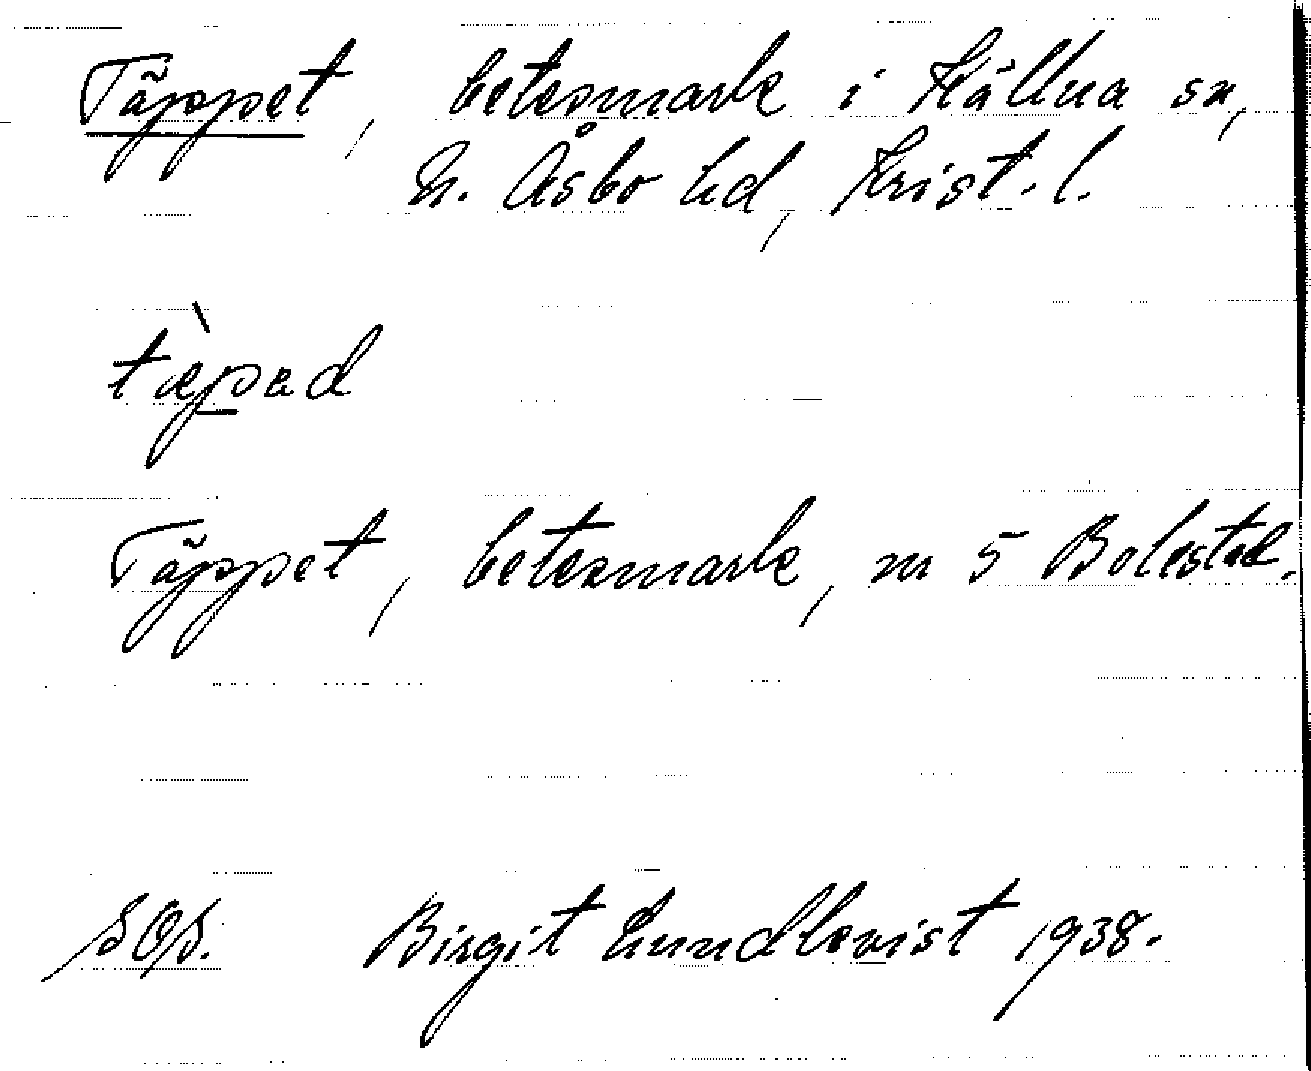 Täppet, betesmark i Källna sn,
N. Åsbo hd, Krist. l.
tæ̀pad
Täppet, betesmark, nr 5 Bolestad.
SOS. Birgit Lundkvist 1938.